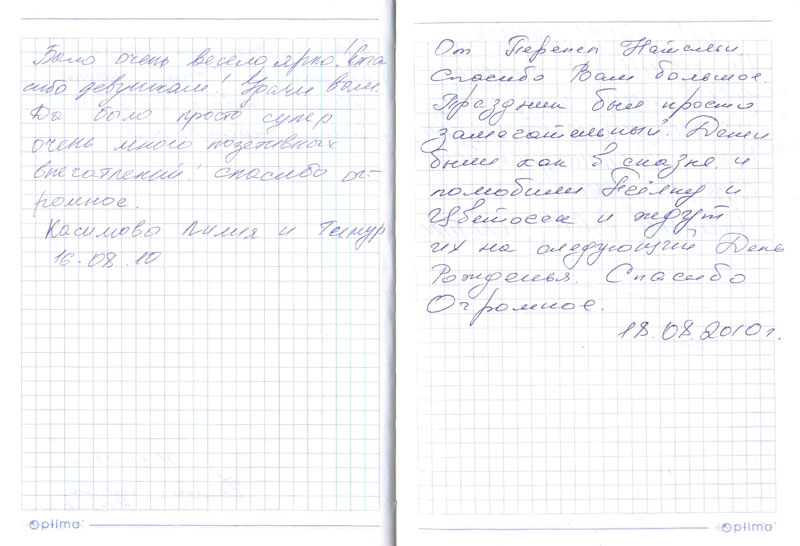 Было очень весело, ярко! Спа
сибо девушкам! Удачи Вам.
Да было просто супер
очень много позетивных
впечатлений! спасибо ог-
ромное.
Касимова Лилия и Тимур
16.08.10
Optima
От Перепеч Натальи.
Спасибо Вам большое.
Праздник был просто
замечательный. Дети
были как в сказке и
полюбили Феячку и
Цветочек и ждут
их на следующий День
Рожденья. Спасибо
Огромное.
18.08.2010г.
Optima